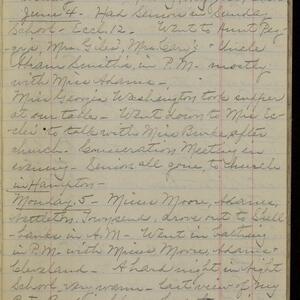 June 4 - Had Seniors in Sunday
School - Eccl. 12. - Went to Aunt Peg-
gy's, Mrs. Giles', Mrs. Gary's - Uncle
Abram Smith's, in P.M. mostly
with Miss Adams -
Miss Georgia Washington took supper
at our table - Went down to Miss
to talk with Miss after
church. Consecration Meeting in
evening - Seniors all gone, to Church
in Hampton -
Monday, 5 - Misses Moore, Adams,
Nettleton, Townsend, drove out to Shell
banks in A.M. - Went in bathing
in P.M. with Misses Moore, Adams &
Cleveland - A hard night in Night
School, very warm - last view of